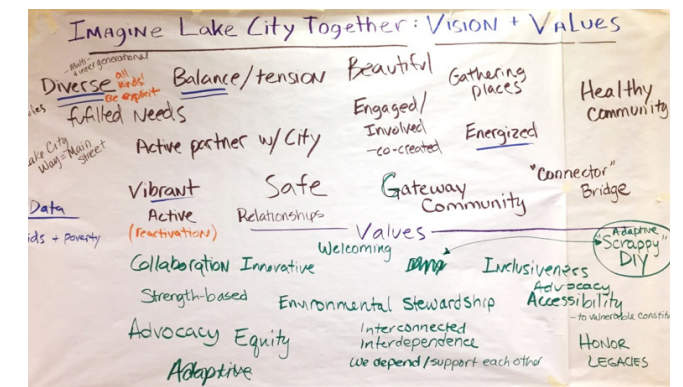 IMAGINE LAKE CITY TOGETHER: VISION + VALUES
-Multi-
+ intergenerational
Diverse
all kinds!
Be explicit
Balance/tension
Beautiful
Gathering
places
Healthy
Community
fufilled Needs
Engaged/
Involved
-co-created
Energized
Active partner w/ City
Lake City
Way = Main
Street
"Connector"
Bridge
Vibrant
Safe
Gateway
Community
Data
Active
(reactivation)
Relationships
ids + poverty
Values
Adaptive
"Scrappy"
DIY
Welcoming
Collaboration
Innovative
Inclusiveness
Strength-based
Environmental Stewardship
Advocacy
Accessibility
-to vulnerable constit
Advocacy
Equity
Interconnected
Interdependence
We depend/support each other
HONOR
LEGACIES
Adaptive